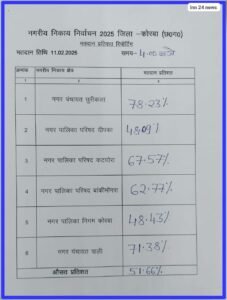 ins 24 news
नगरीय निकाय निर्वाचन 2025 जिला -कोरबा (छ0ग0)
मतदान प्रतिशत रिपोर्टिंग
मतदान तिथि 11.02.2025 समय- 4.00 बजे
क्रमांक नगरीय निकाय क्षेत्र मतदान प्रतिशत
1 2 3
1 नगर पंचायत छुरीकला 78.23%
2 नगर पालिका परिषद दीपका 48.09%
3 नगर पालिका परिषद कटघोरा 67.57%
4 नगर पालिका परिषद बांकीमोंगरा 62.77%
5 नगर पालिक निगम कोरबा 48.43%
6 नगर पंचायत पाली 71.38%
औसत प्रतिशत 51.66%